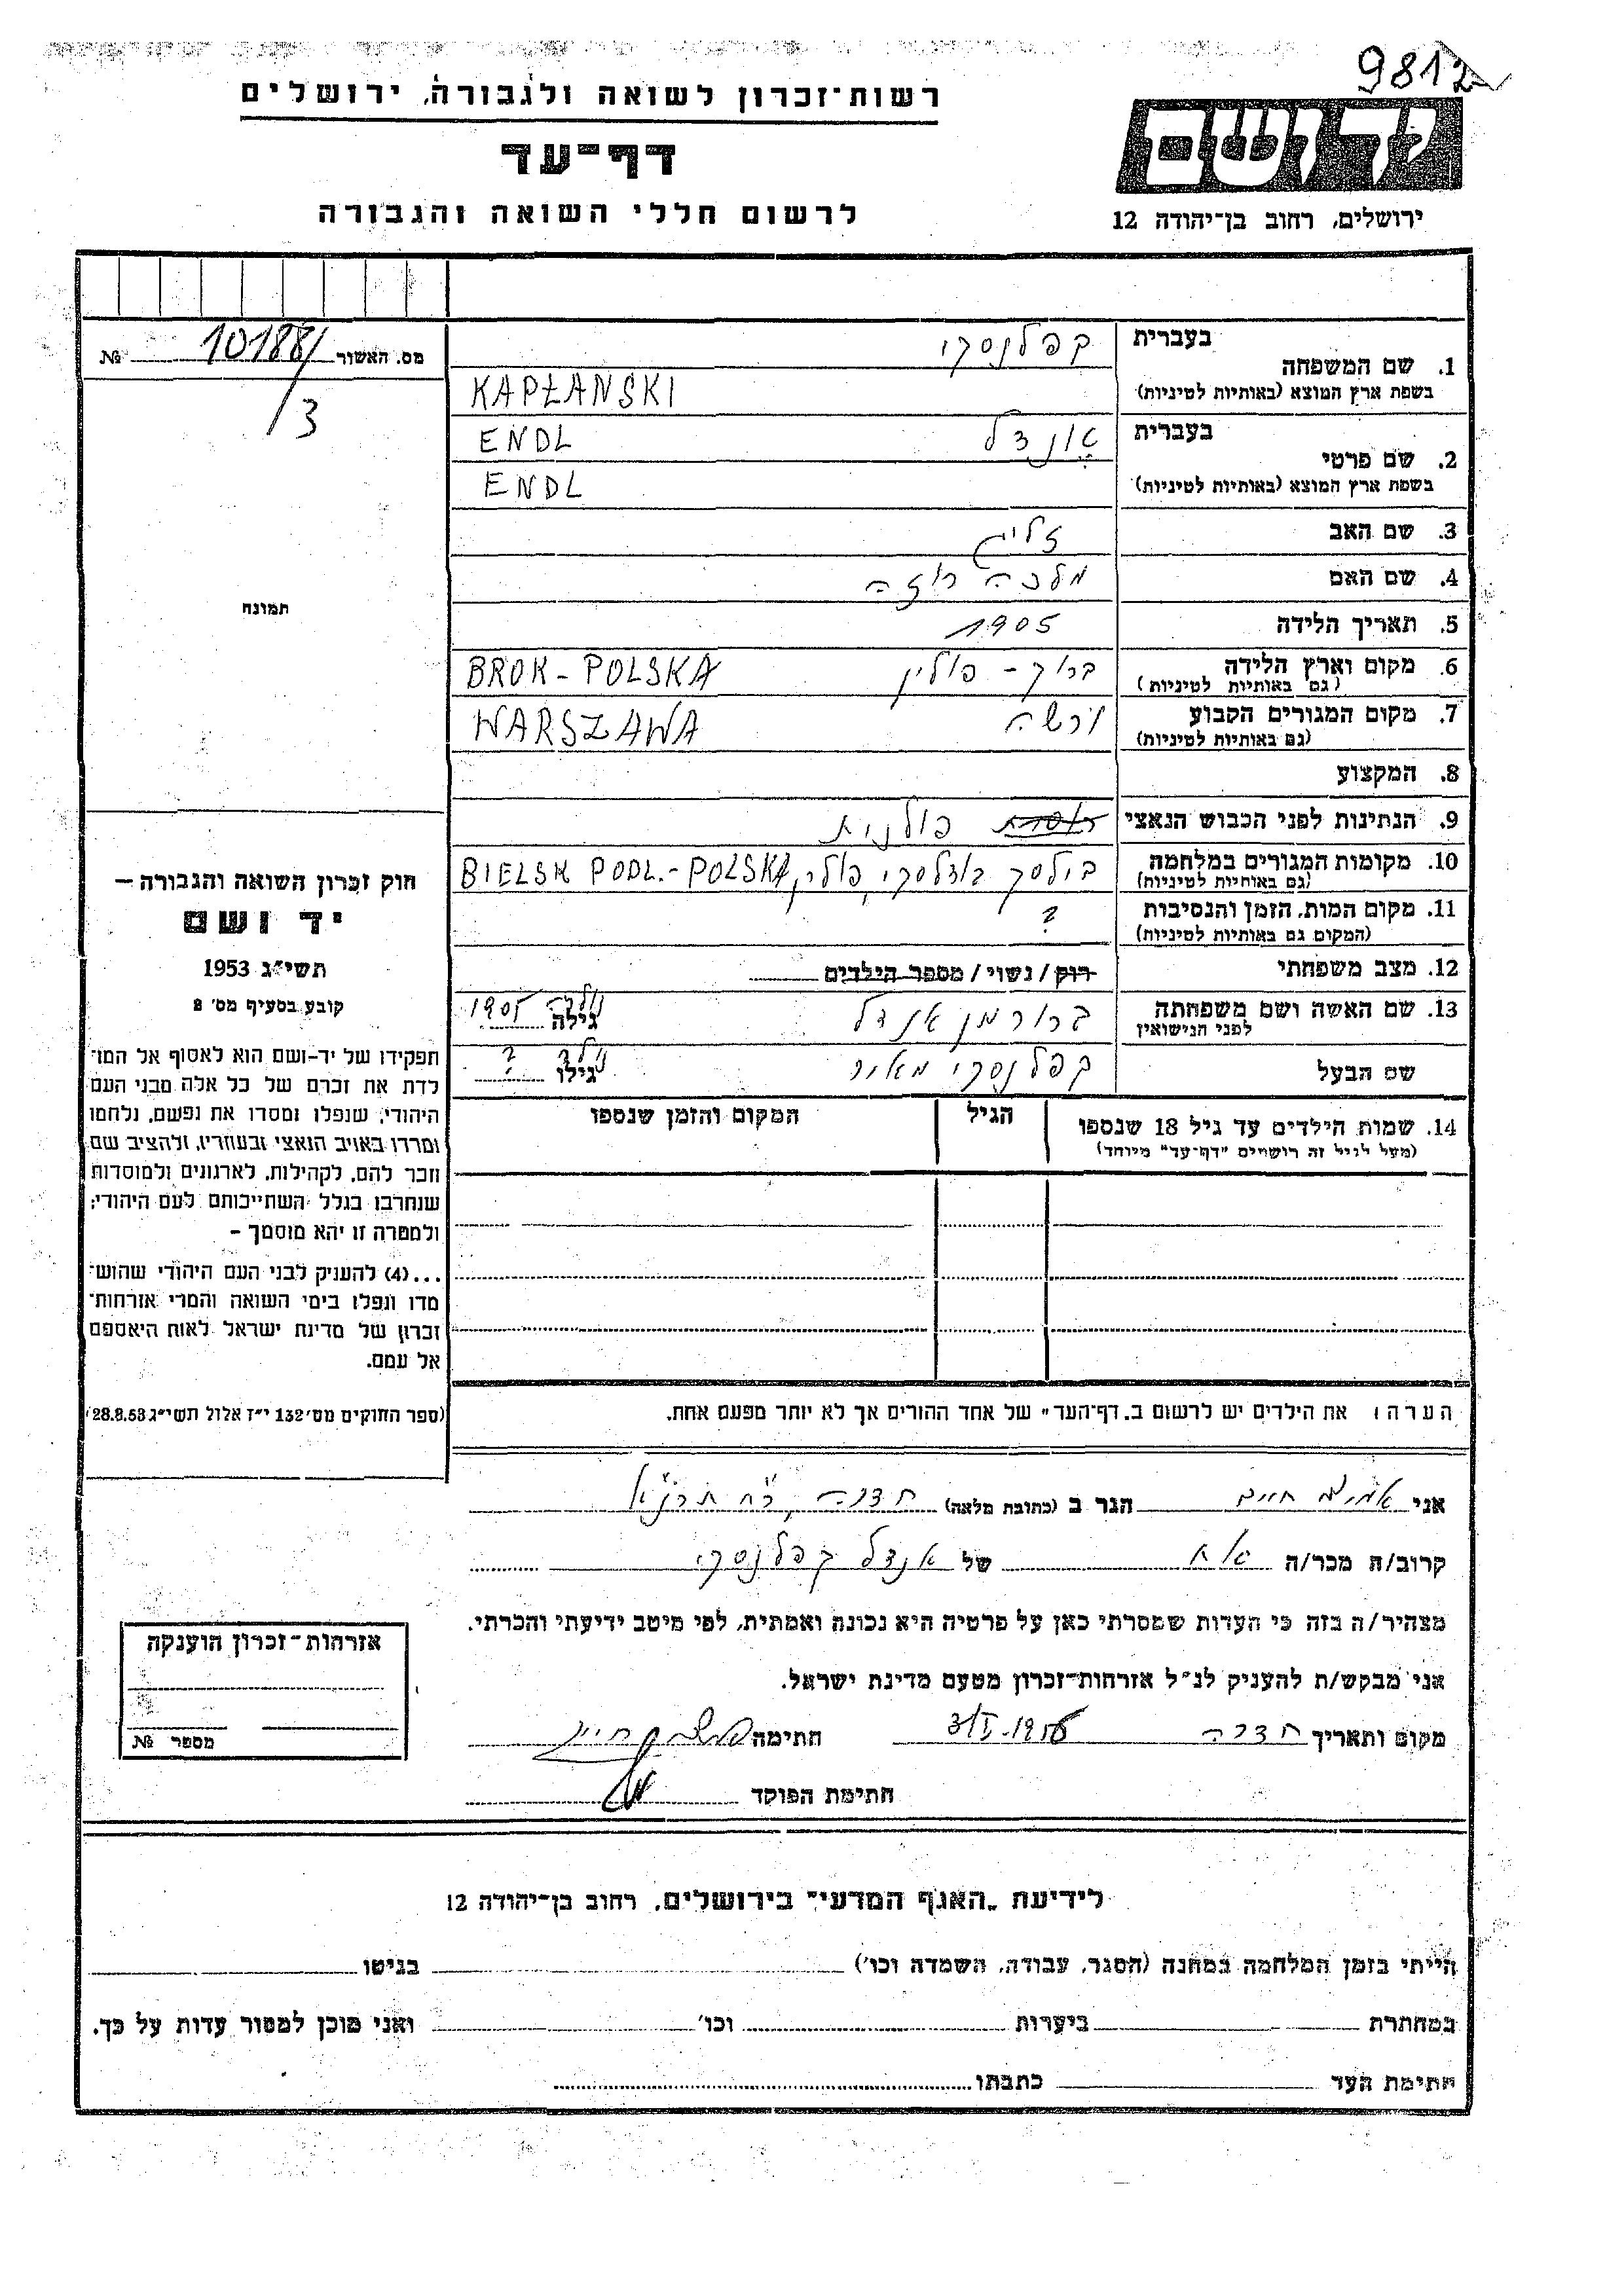 9812
רשות־זכרון לשואה ולגבורה, ירושלים
דף־עד
לרשום חללי השואה והגבורה
יד ושם
ירושלים, רחוב בן־יהודה 12
מס. האשור 10188/ №
/3
תמונה
בעברית
1. שם המשפחה קפלנסקי
בשפת ארץ המוצא (באותיות לטיניות) KAPŁANSKI
בעברית
2. שם פרטי אנדל ENDL
בשפת ארץ המוצא (באותיות לטיניות) ENDL
3. שם האב זליג
4. שם האם מלכה רוזה
5. תאריך הלידה 1905
6. מקום וארץ הלידה ברוק - פולין BROK - POLSKA
(גם באותיות לטיניות)
7. מקום המגורים הקבוע ורשה WARSZAWA
(גם באותיות לטיניות)
8. המקצוע
9. הנתינות לפני הכבוש הנאצי פולנית
10. מקומות המגורים במלחמה בילסק פודלסקי, פולין, BIELSK PODL.-POLSKA
(גם באותיות לטיניות)
11. מקום המות, הזמן והנסיבות ?
(המקום גם באותיות לטיניות)
12. מצב משפחתי רוק / נשוי / מספר הילדים
13. שם האשה ושם משפחתה אנדל גילה 1905
לפני הנישואין
שם הבעל קפלנסקי מאיר גילו ?
14. שמות הילדים עד גיל 18 שנספו הגיל המקום והזמן שנספו
(מעל לגיל זה רושמים "דף־עד" מיוחד)
חוק זכרון השואה והגבורה —
יד ושם
תשי״ג 1953
קובע בסעיף מס׳ 8
תפקידו של יד-ושם הוא לאסוף אל המו־
לדת את זכרם של כל אלה מבני העם
היהודי, שנפלו ומסרו את נפשם, נלחמו
ומרדו באויב הנאצי ובעוזריו, ולהציב שם
וזכר להם, לקהילות, לארגונים ולמוסדות
שנחרבו בגלל השתייכותם לעם היהודי;
ולמטרה זו יהא מוסמך –
...(4) להעניק לבני העם היהודי שהוש־
מדו ונפלו בימי השואה והמרי אזרחות־
זכרון של מדינת ישראל לאות היאספם
אל עמם.
(ספר החוקים מס׳ 132 י״ז אלול תשי״ג 28.8.53)
הערה: את הילדים יש לרשום ב„דף־העד" של אחד ההורים אך לא יותר מפעם אחת.
אני חיים הגר ב (כתובת מלאה) חדרה, רח
קרוב/ה מכר/ה אח של אנדל קפלנסקי
מצהיר/ה בזה כי העדות שמסרתי כאן על פרטיה היא נכונה ואמתית, לפי מיטב ידיעתי והכרתי.
אני מבקש/ת להעניק לנ״ל אזרחות־זכרון מטעם מדינת ישראל.
מקום ותאריך חדרה 3/I-1956 חתימה
חתימת הפוקד
אזרחות־זכרון הוענקה
מספר №
לידיעת „האגף המדעי" בירושלים, רחוב בן־יהודה 12
הייתי בזמן המלחמה במחנה (הסגר, עבודה, השמדה וכו׳) בגיטו
במחתרת ביערות וכו׳ ואני מוכן למסור עדות על כך.
חתימת העד כתבתו